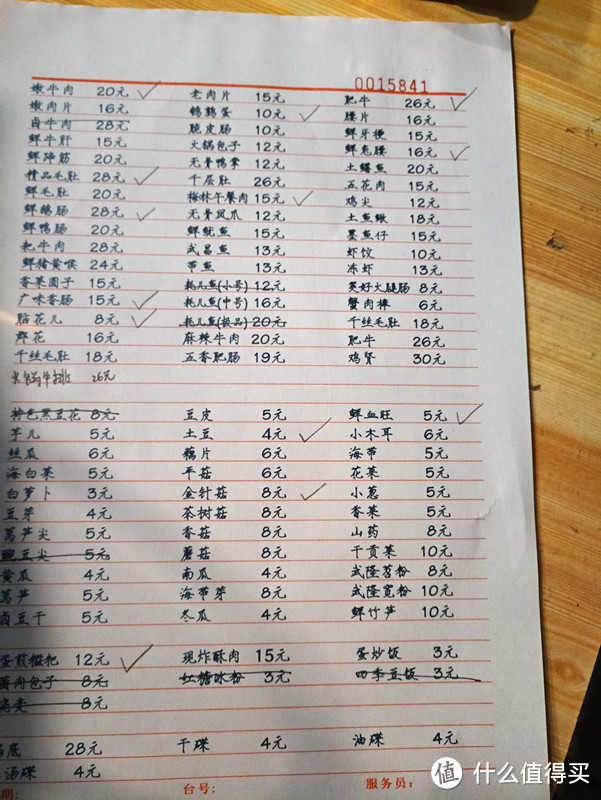 0015841
嫩牛肉 20元 老肉片 15元 肥牛 26元
嫩肉片 16元 鹌鹑蛋 10元 腰片 16元
卤牛肉 28元 脆皮肠 10元 鲜牙梗 15元
鲜牛肝 15元 火锅包子 12元 鲜兔腰 16元
鲜蹄筋 20元 无骨鸭掌 12元 土鳝鱼 20元
精品毛肚 28元 千层肚 26元 五花肉 15元
鲜毛肚 20元 梅林午餐肉 15元 鸡尖 12元
鲜鹅肠 28元 无骨凤爪 12元 土鱼鳅 18元
鲜鸭肠 20元 鲜鱿鱼 15元 墨鱼仔 15元
耙牛肉 28元 武昌鱼 13元 虾饺 10元
鲜猪黄喉 24元 带鱼 13元 冻虾 13元
香菜圆子 15元 耗儿鱼(小号) 12元 美好火腿肠 8元
广味香肠 15元 耗儿鱼(中号) 16元 蟹肉棒 6元
脑花儿 8元 耗儿鱼(极品) 20元 千丝毛肚 18元
郡花 16元 麻辣牛肉 20元 肥牛 26元
千丝毛肚 18元 五香肥肠 19元 鸡肾 30元
火锅牛排 26元
特色黑豆花 8元 豆皮 5元 鲜血旺 5元
芋儿 5元 土豆 4元 小木耳 6元
丝瓜 6元 藕片 6元 海带 5元
海白菜 5元 平菇 6元 花菜 5元
白萝卜 3元 金针菇 8元 小葱 5元
豆芽 4元 茶树菇 8元 香菜 5元
莴笋尖 5元 香菇 8元 山药 8元
豌豆尖 5元 蘑菇 8元 干贡菜 10元
黄瓜 4元 南瓜 4元 武隆苕粉 8元
莴笋 5元 海带芽 8元 武隆宽粉 10元
卤豆干 5元 冬瓜 4元 鲜竹笋 10元
蛋煎糍粑 12元 现炸酥肉 15元 蛋炒饭 3元
酱肉包子 8元 红糖冰粉 3元 四季豆饭 3元
烧麦 8元
锅底 28元 干碟 4元 油碟 4元
汤碟 4元
期: 台号: 服务员:
值 什么值得买